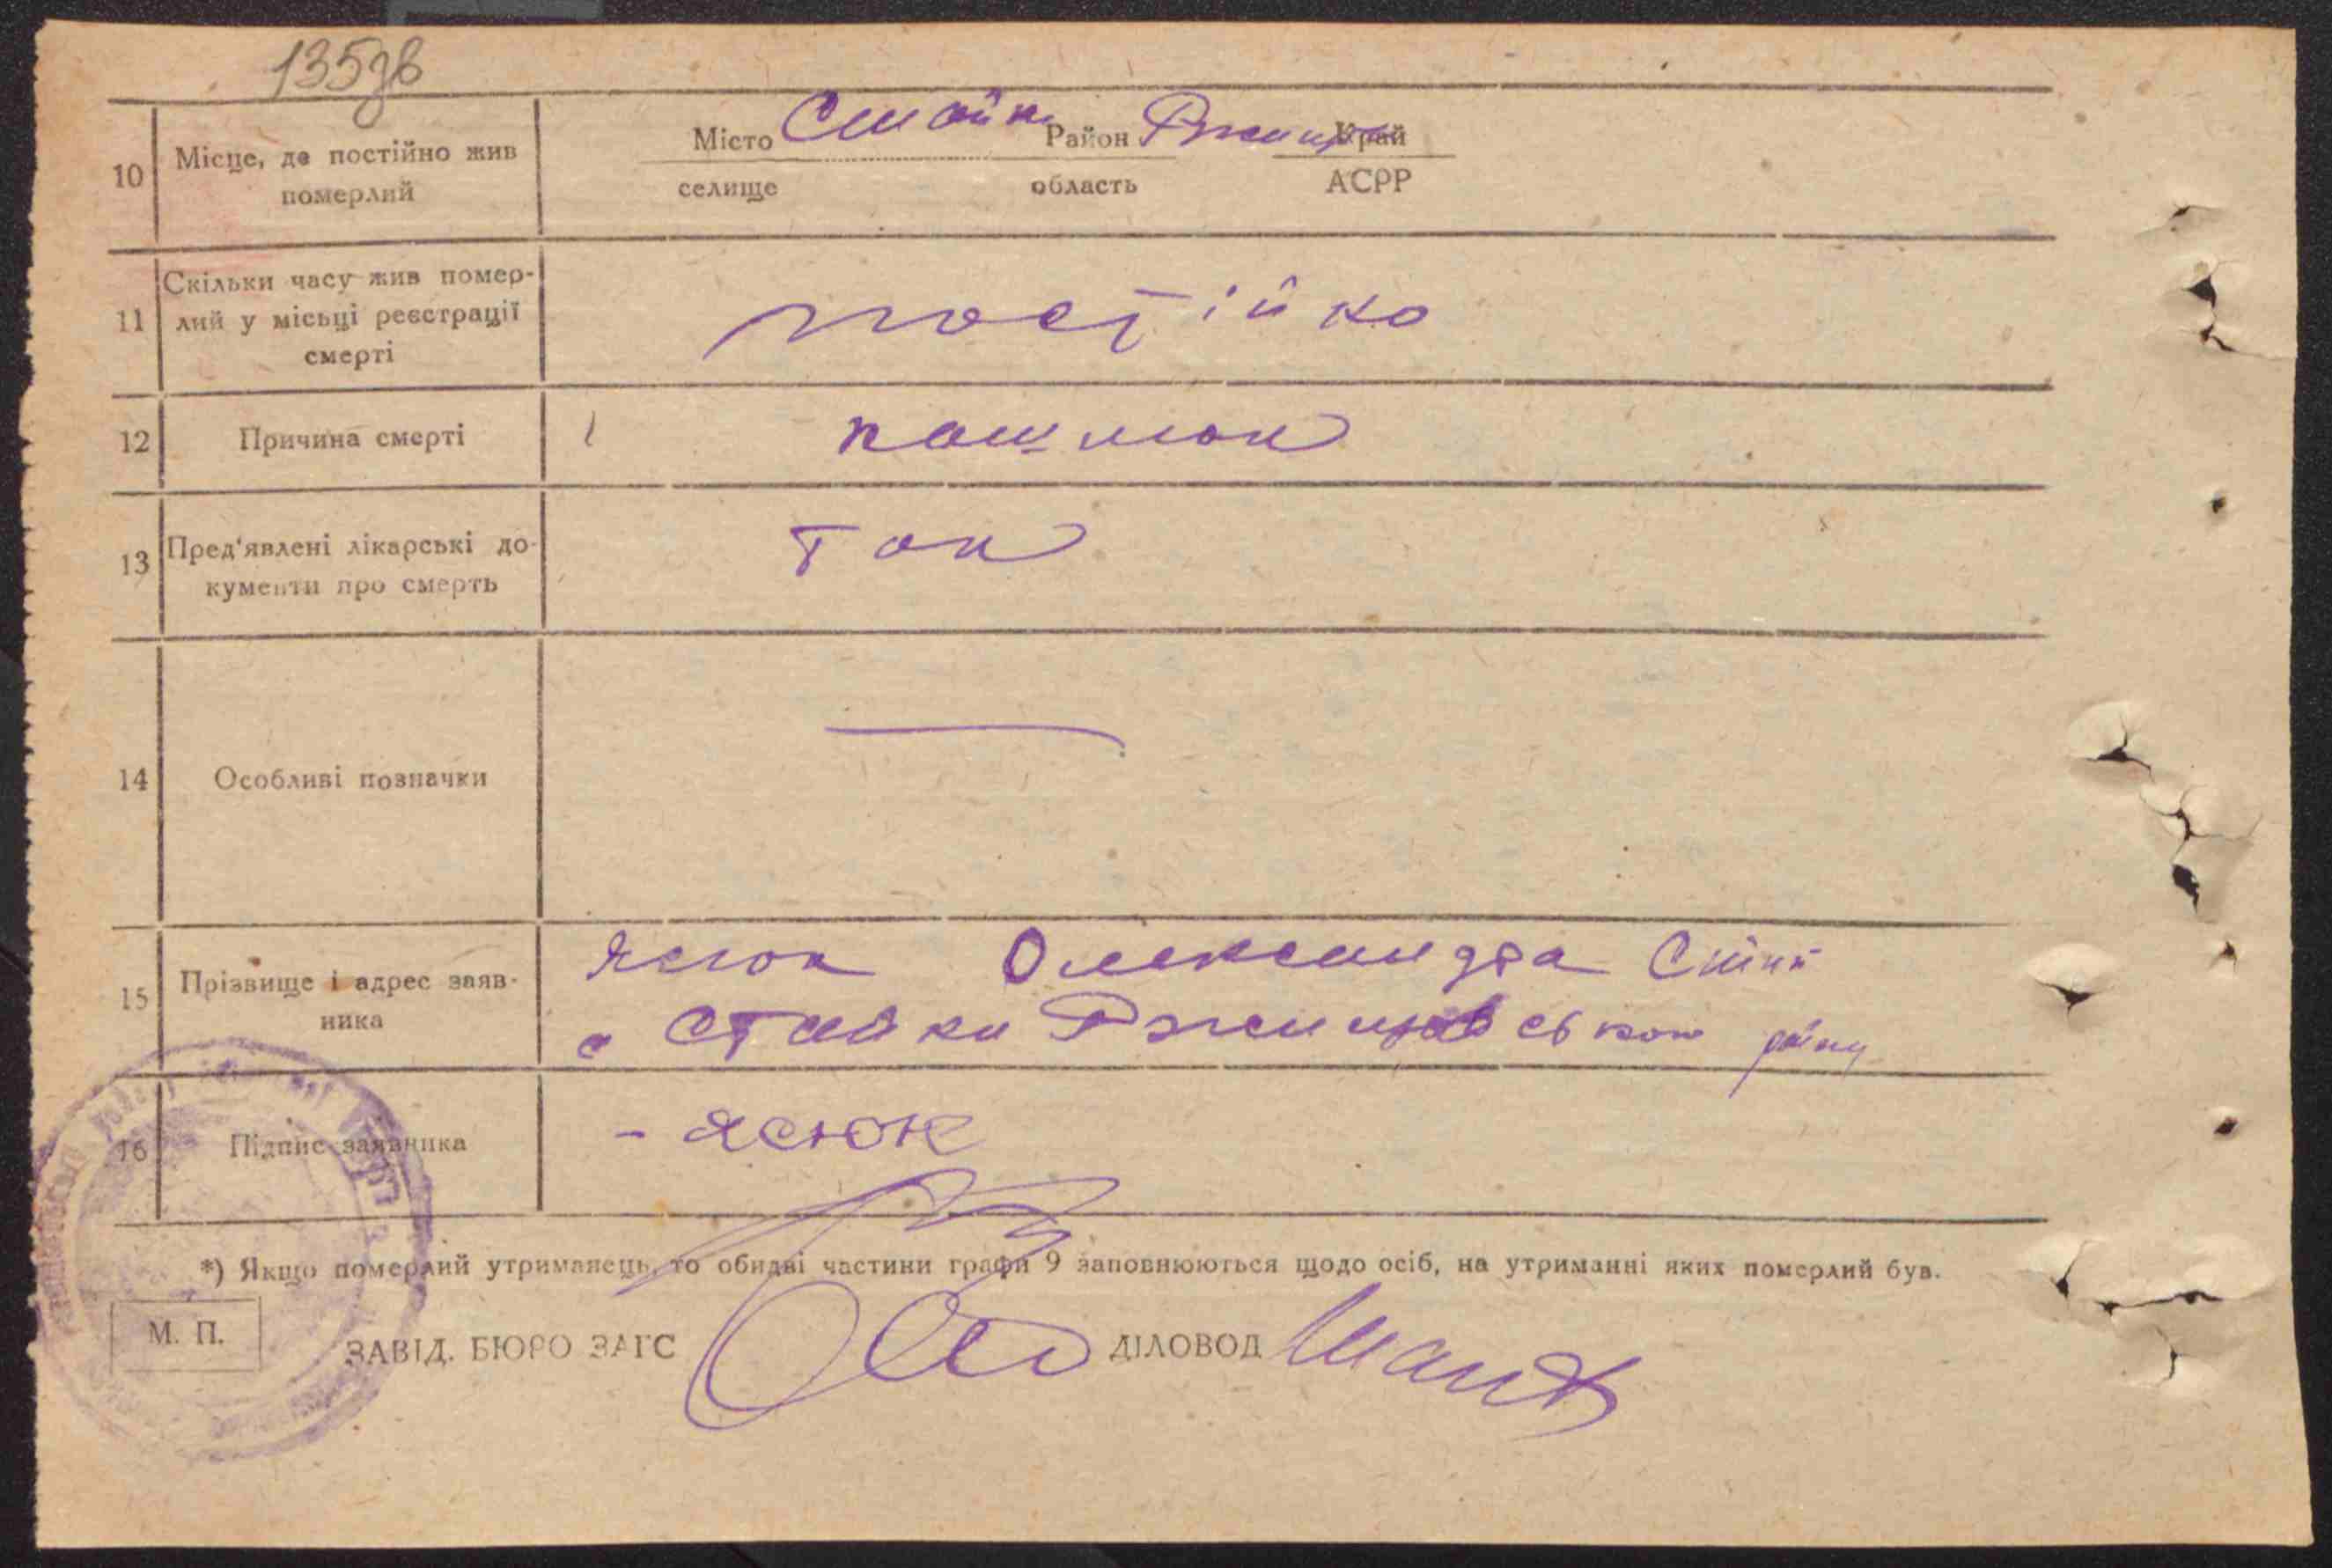 135зв
10 Місце, де постійно жив померлий
Місто Стайки Район Ржищ Край
селище область АСРР
11 Скільки часу жив помер-
лий у місьці реєстрації
смерті
постійно
12 Причина смерті
кашлюк
13 Пред'явлені лікарські до-
кументи про смерть
Так
14 Особливі позначки
—
15 Прізвище і адрес заяв-
ника
Ясюк Олександра
с Стайки Ржищівського райну
16 Підпис заявника
- Ясюк
*) Якщо померлий утриманець, то обидві частини графи 9 заповнюються щодо осіб, на утриманні яких померлий був.
М. П.
ЗАВІД. БЮРО ЗАГС ДІЛОВОД